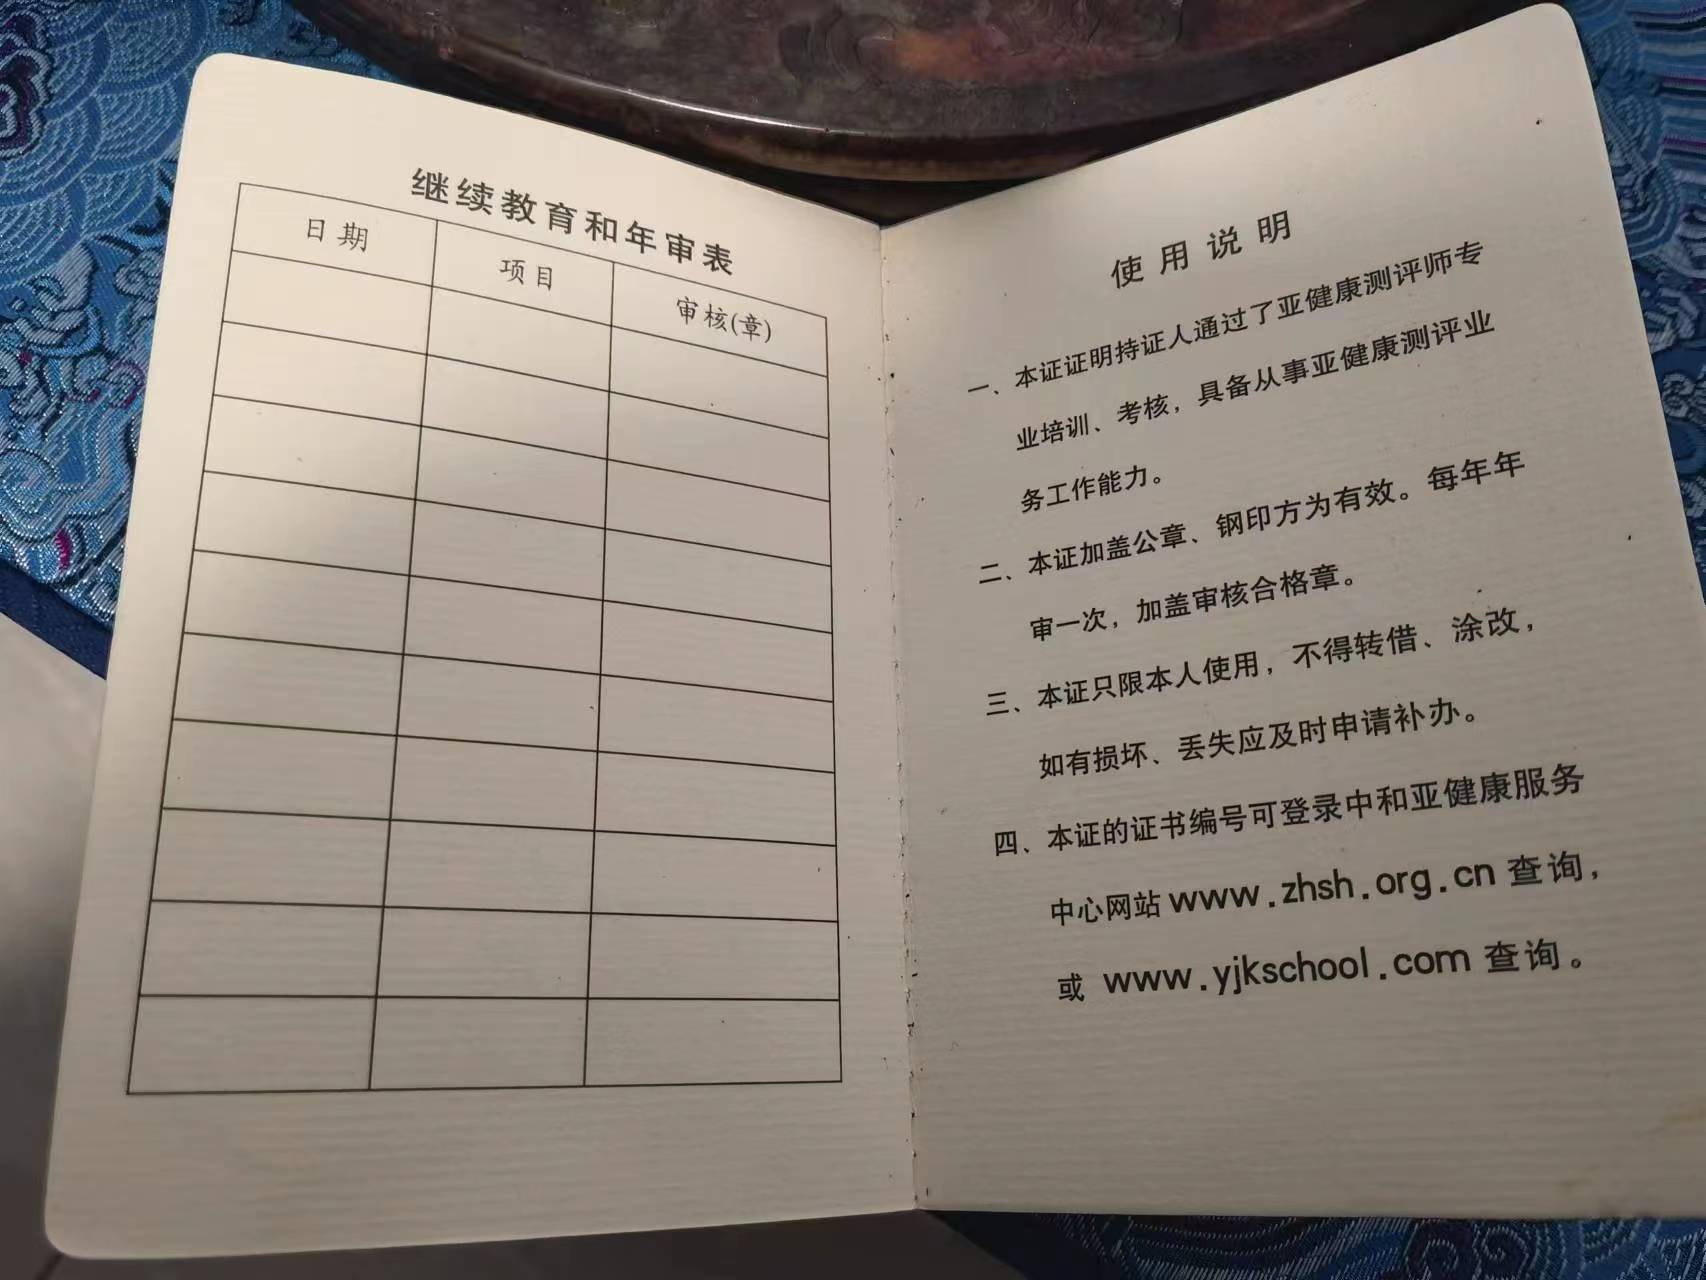 继续教育和年审表
日期 项目 审核(章)
使用说明
一、本证证明持证人通过了亚健康测评师专
业培训、考核，具备从事亚健康测评业
务工作能力。
二、本证加盖公章、钢印方为有效。每年年
审一次，加盖审核合格章。
三、本证只限本人使用，不得转借、涂改，
如有损坏、丢失应及时申请补办。
四、本证的证书编号可登录中和亚健康服务
中心网站www.zhsh.org.cn查询，
或 www.yjkschool.com查询。